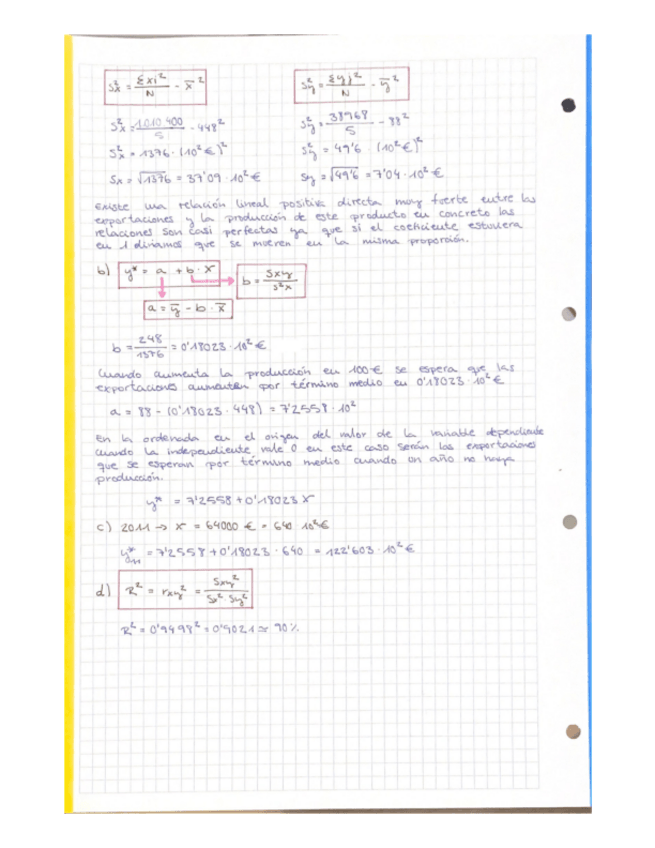 Sx² = Σxi²/N - x̄²
Sy² = Σyj²/N - ȳ²
Sx² = 1010400/5 - 448²
Sy² = 38968/5 - 88²
Sx² = 1376 · (10² €)²
Sy² = 49'6 · (10² €)²
Sx = √1376 = 37'09 · 10² €
Sy = √49'6 = 7'04 · 10² €
Existe una relación lineal positiva directa muy fuerte entre las
exportaciones y la producción de este producto en concreto las
relaciones son casi perfectas ya que si el coeficiente estuviera
en 1 diríamos que se mueven en la misma proporción.
b) y* = a + b · x
b = Sxy/S²x
a = ȳ - b · x̄
b = 248/1376 = 0'18023 · 10² €
Cuando aumenta la producción en 100€ se espera que las
exportaciones aumenten por término medio en 0'18023 · 10² €
a = 88 - (0'18023 · 448) = 7'2558 · 10²
En la ordenada en el origen del valor de la variable dependiente
cuando la independiente vale 0 en este caso serán las exportaciones
que se esperan por término medio cuando un año no haya
producción.
y* = 7'2558 + 0'18023 x
c) 2011 → x = 64000 € = 640 10² €
y*₁₁ = 7'2558 + 0'18023 · 640 = 122'603 · 10² €
d) R² = rxy² = Sxy²/Sx² Sy²
R² = 0'9498² = 0'9021 ≃ 90%